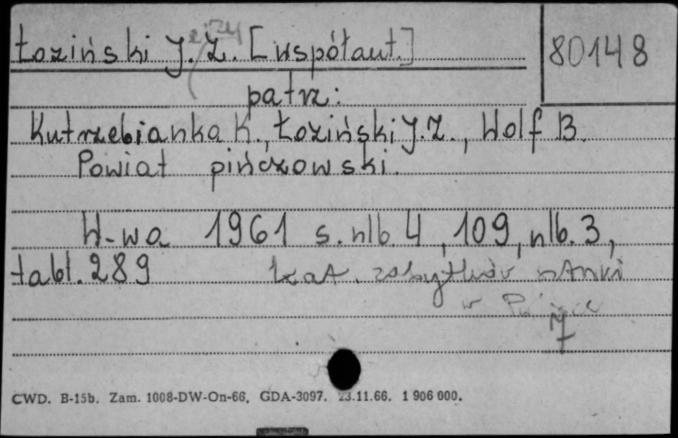 Łoziński J. Z. [współaut.]
80148
patrz:
Kutrzebianka K., Łoziński J. Z., Wolf B.
Powiat pińczowski.
W-wa 1961 s. nlb. 4, 109, nlb. 3,
tabl. 289 kat. zabytków sztuki
w
CWD. B-15b. Zam. 1008-DW-On-66, GDA-3097. 23.11.66. 1 906 000.